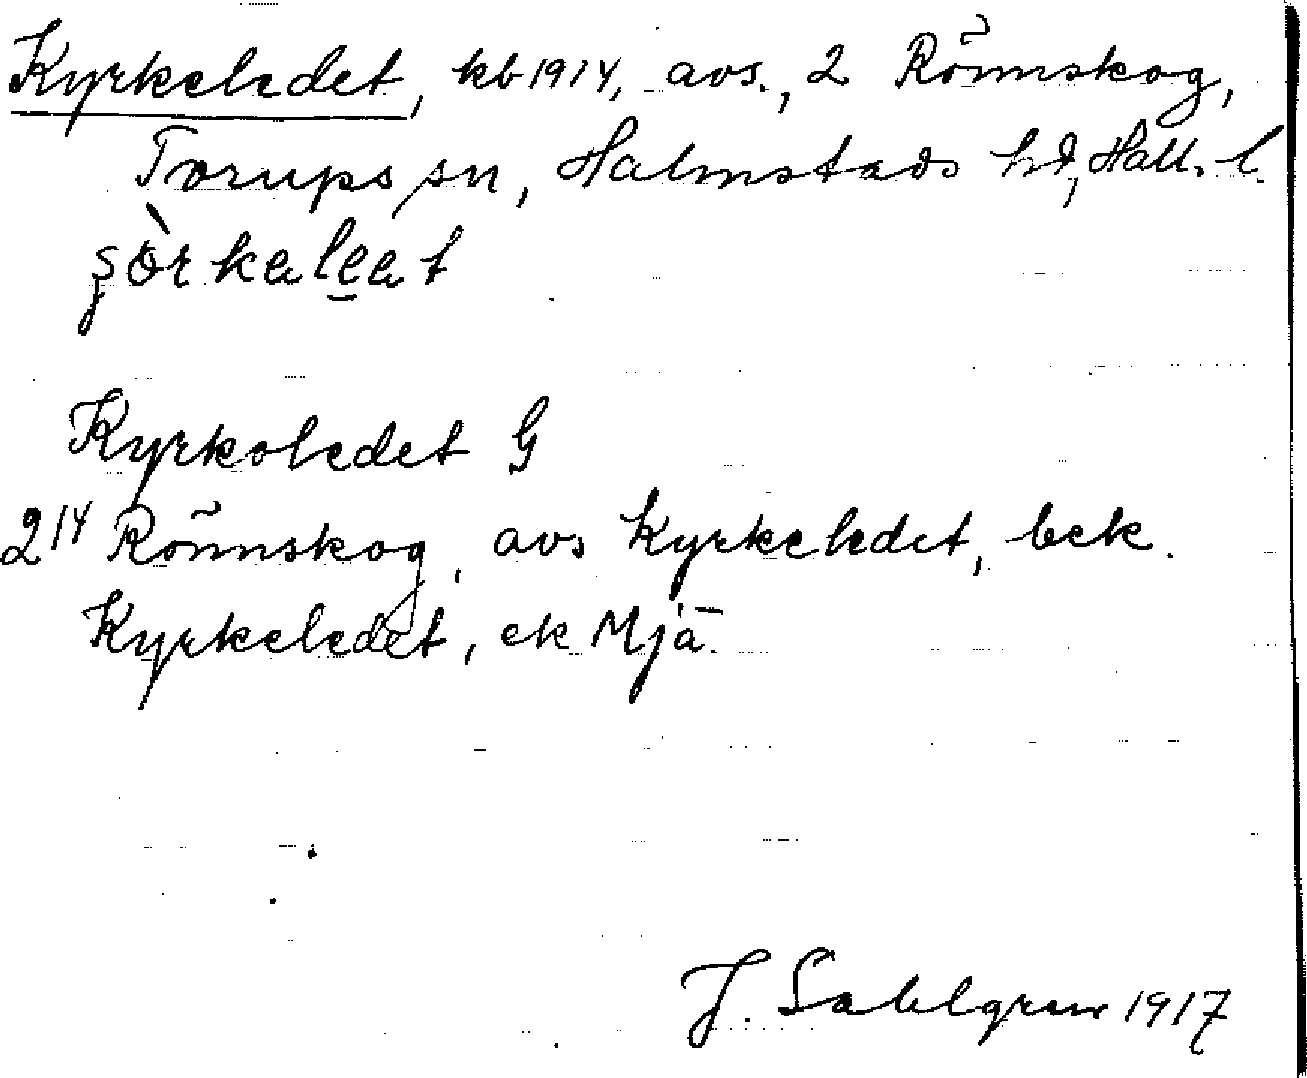 Kyrkeledet, kb 1914, avs., 2 Rönnskog,
Torups sn, Halmstads hd, Hall. l.
Kyrkoledet G
2 14 Rönnskog, avs Kyrkeledet, bek.
Kyrkeledet, ek Mjä.
J. Sahlgren 1917